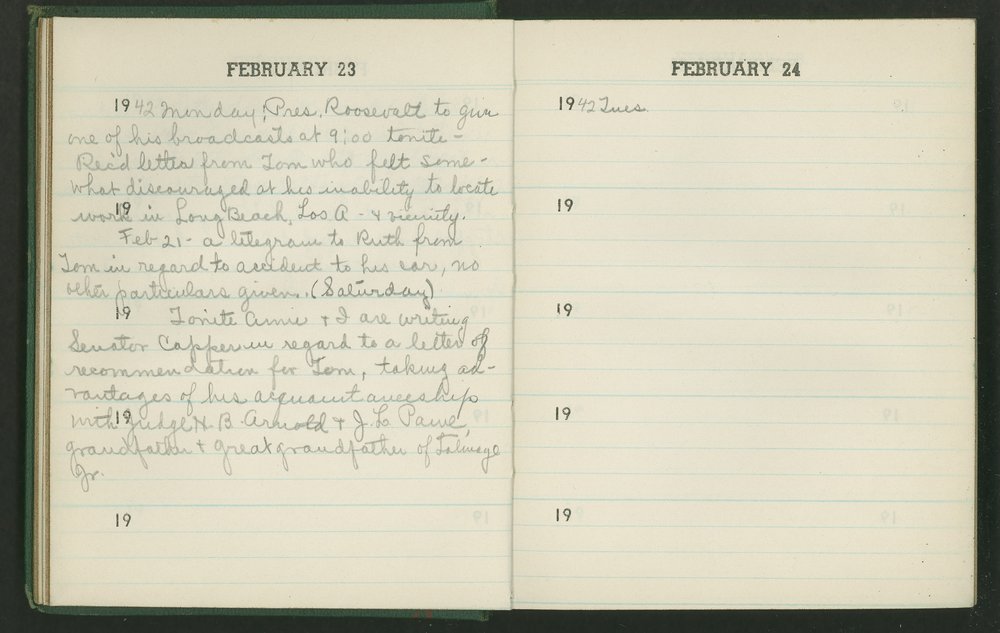 FEBRUARY 23
1942 Monday; Pres. Roosevalt to give
one of his broadcasts at 9:00 tonite -
Rec'd letter from Tom who felt some-
what discouraged at his inability to locate
19
work in Long Beach, Los A - & vicinity.
Feb 21 - a telegram to Ruth from
Tom in regard to accident to his car, no
other particulars given. (Saturday)
19 Tonite Annie & I are writing
Senator Capper in regard to a letter of
recommendation for Tom, taking ad-
vantages of his acquaintanceship
19
with Judge N. B. Arnold & J. L. Paine,
grandfather & great grandfather of Talmage
Jr.
19
FEBRUARY 24
1942 Tues.
19
19
19
19